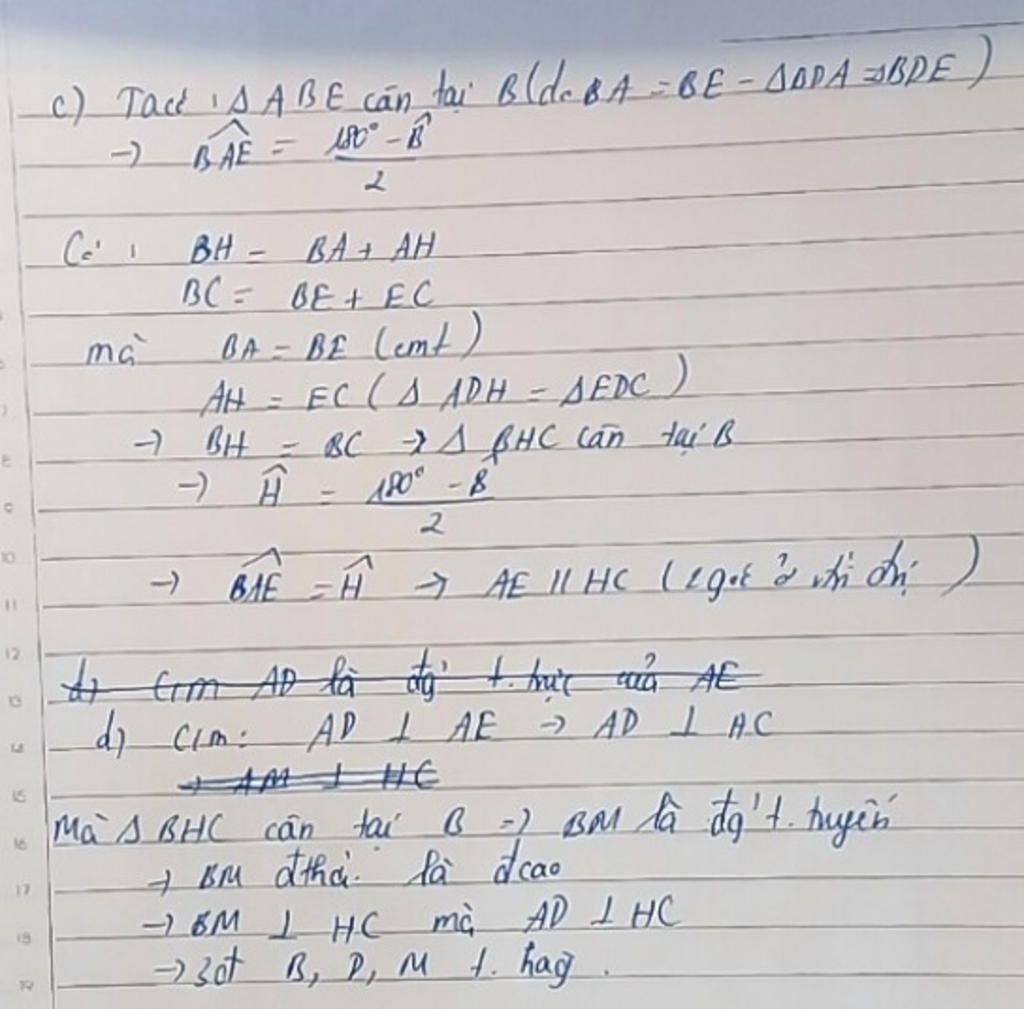 c) Ta có : Δ ABE cân tại B (do BA = BE - ΔBDA = ΔBDE)
→ BAE = 180° - B / 2
Có : BH = BA + AH
BC = BE + EC
mà BA = BE (cmt)
AH = EC (Δ ADH = ΔEDC)
→ BH = BC → Δ BHC cân tại B
→ H = 180° - B / 2
→ BAE = H → AE // HC (2 góc ở vị trí đvị)
d) C/m AD là đg t. trực của AE
d) C/m: AD ⊥ AE → AD ⊥ HC
→ AM ⊥ HC
Mà Δ BHC cân tại B → BM là đg t. tuyến
→ BM đthời là đcao
→ BM ⊥ HC mà AD ⊥ HC
→ 3 đ' B, D, M t. hàg.